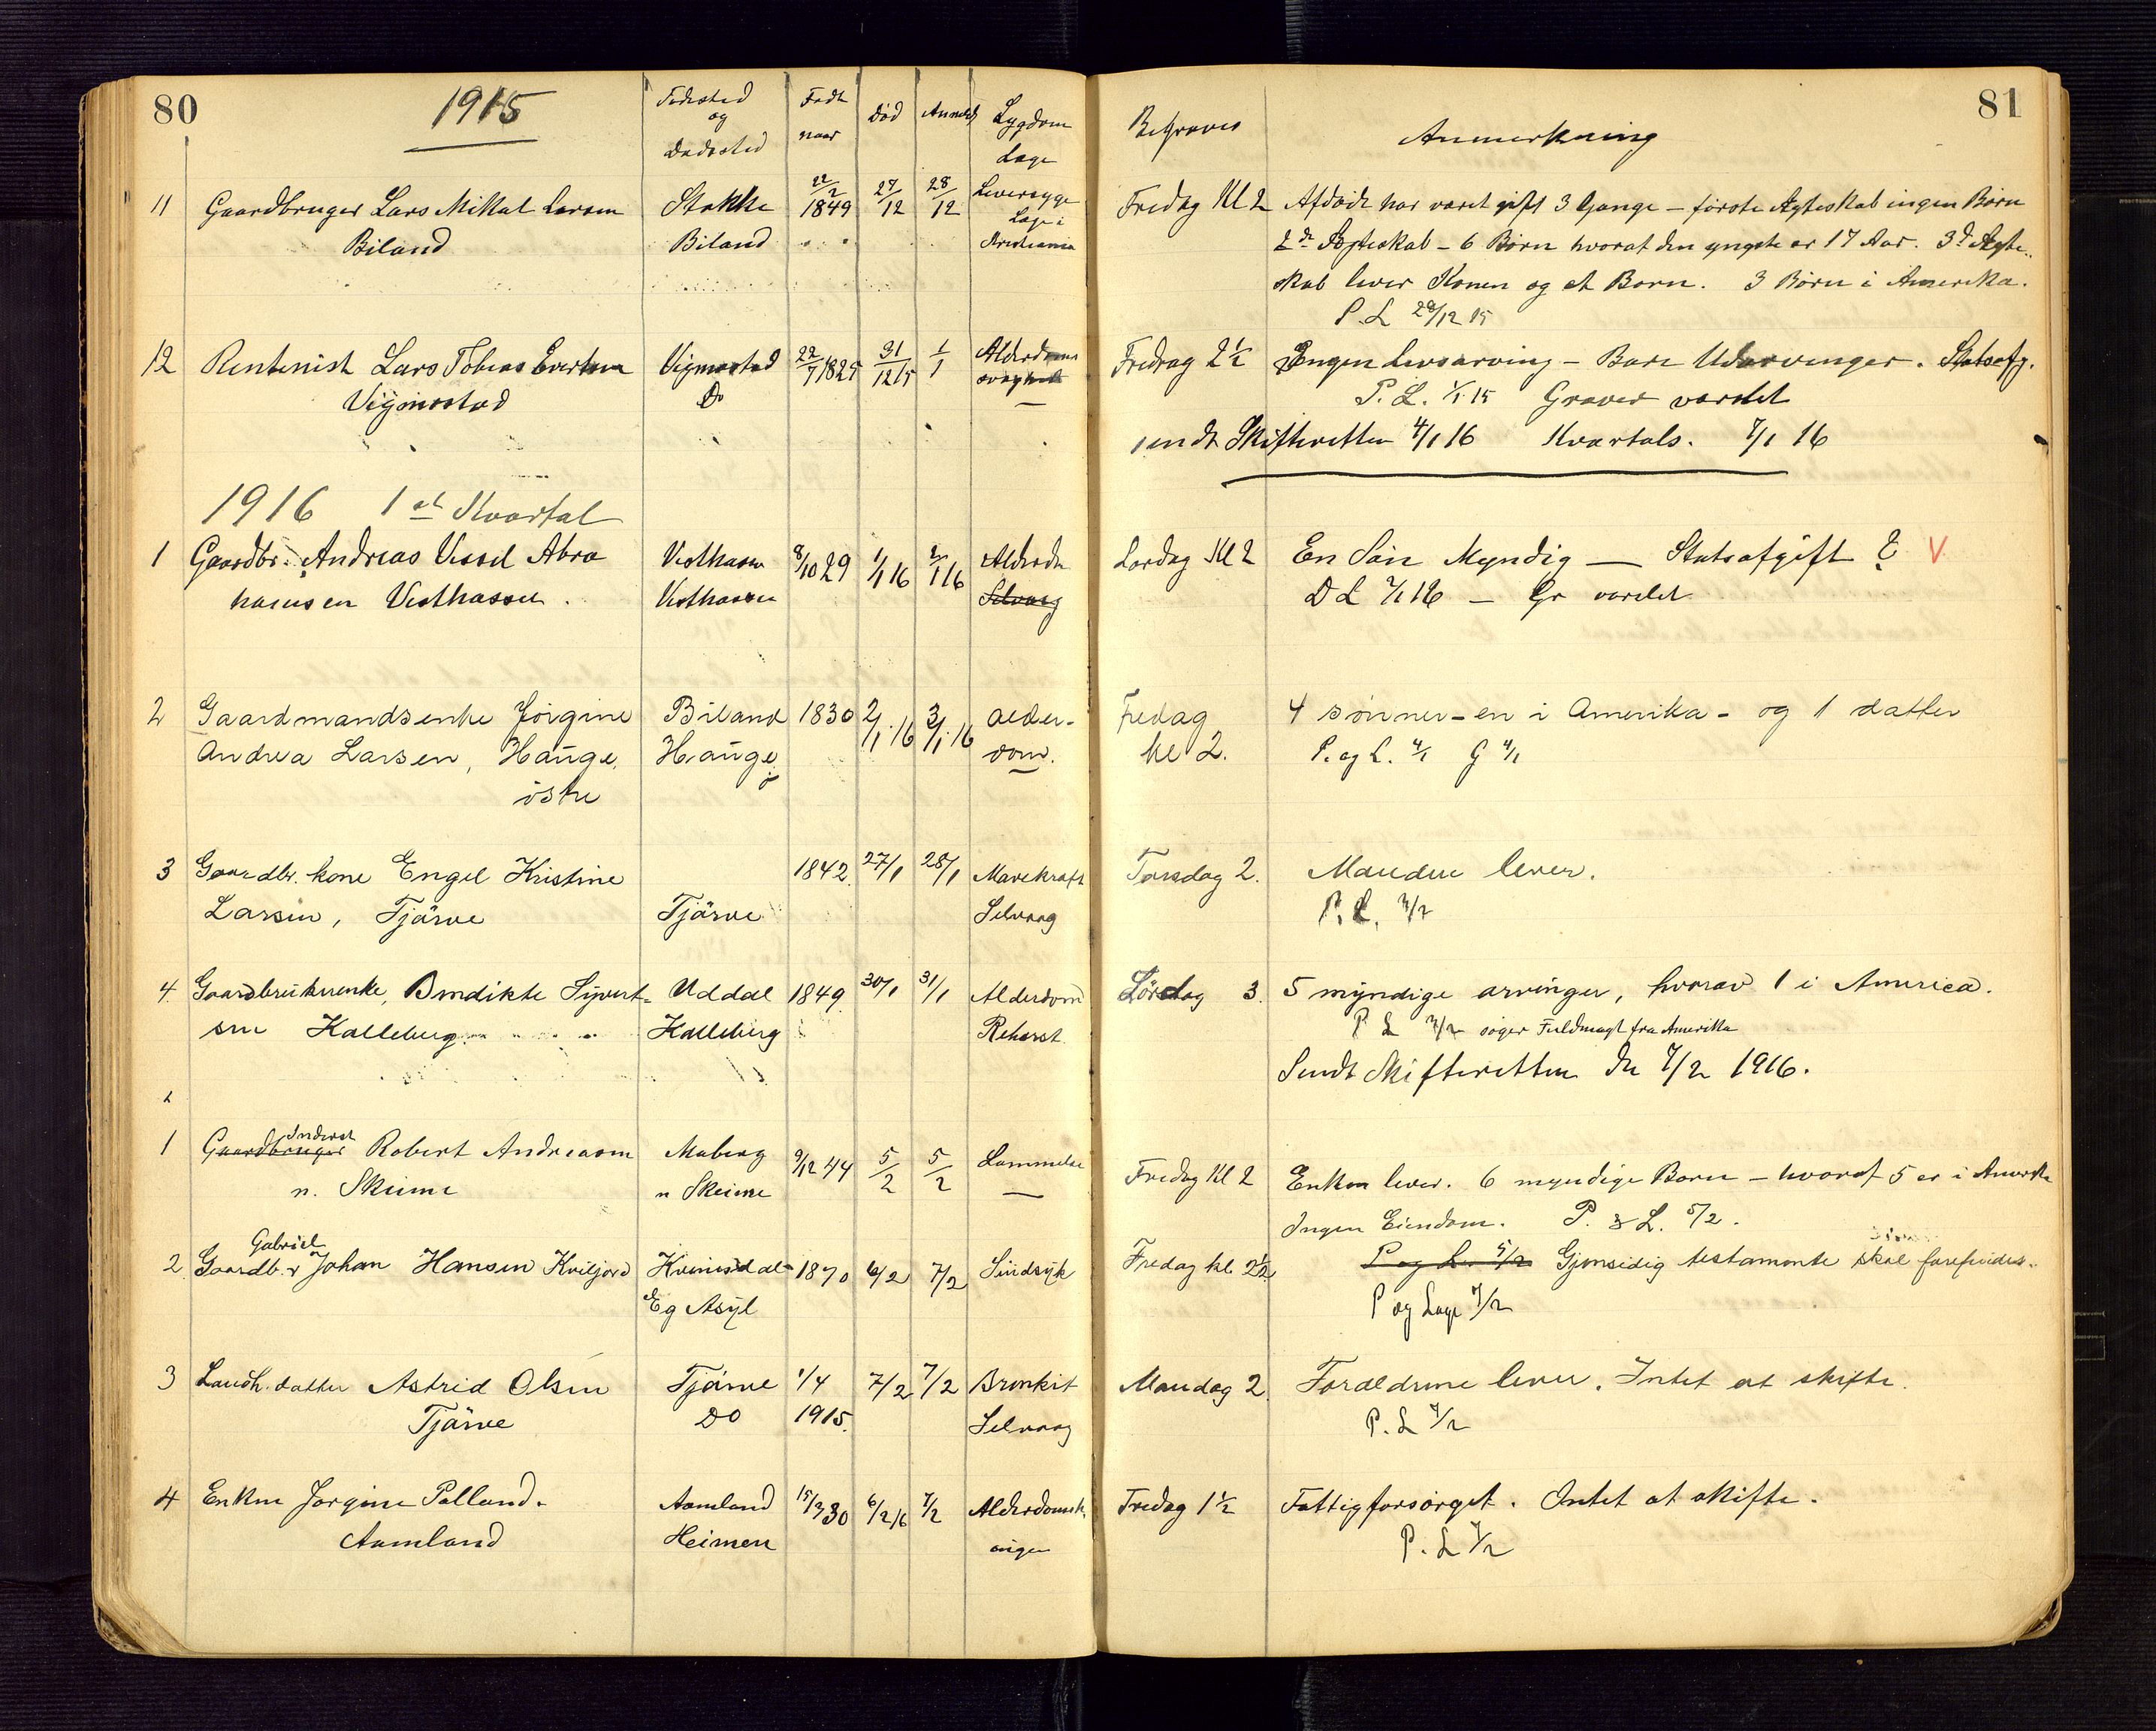 80
1915
Fødested og Dødsted
Født naar
Død
Anmeldt
Sygdom Læge
11 Gaardbruger Lars Mikal Larsen
Biland
Stokke
Biland
22/2 1849
27/12
28/12
Leversyge
Læge i
Kristiania
12 Rentenist Lars Tobias Evertsen
Vigmostad
Vigmostad
Do
22/7 1825
31/12 15
1/1
Alderdoms
svaghed
1916 1st Kvartal
1 Gaardbr. Andreas Vessel Abra
hamsen Vesthassel
Vesthassel
Vesthassel
8/10 29
1/1 16
2/1 16
Alderdo
Selvaag
2 Gaardmandsenke Jørgine
Andrea Larsen, Hauge
östre
Biland
Hauge
ö
1830
2/1 16
3/1 16
Alder-
dom.
3 Gaardbr. kone Engel Kristine
Larsen, Tjärve
Tjärve
1842.
27/1
28/1
Mavekraft
Selvaag
4. Gaardbrukerenke, Bendikte Sivert-
sen Kalleberg
Uddal
Kalleberg
1849
30/1
31/1
Alderdom
1 Gaardbruger Inderst Robert Andreasen
n. Skeime
Maberg
n Skeime
9/12 44
5/2
5/2
Lammelse
2 Gaardb.r Gabriel Johan Hansen Kviljord
Kvinesdal
Eg Asyl
1870
6/2
7/2
Sindsyk
3 Landh. datter Astrid Olsen
Tjärve
Tjörve
Do
1/4
1915.
7/2
7/2
Bronkit
Selvaag
4 Enken Jørgine Polland.
Aamland
Aamland
Heimen
15/3 30
6/2 16
7/2
81
Begraves
Anmerkning
Fredag Kl 2 Afdøde har været gift 3 Gange – første Ægteskab ingen Børn
2de Ægteskab – 6 Børn hvoraf den yngste er 17 Aar. 3d Ægte-
skab lever Konen og et Barn. 3 Børn i Amerika.
P.L 28/12 15
Fredag 2½ Ingen Livsarving – Bare Udarvinger. Statsafg.
P. L. 1/1 15 Graver varslet
sendt Skifteretten 4/1 16 Kvartals. 7/1 16
Lørdag Kl 2 En Søn Myndig — Statsafgift ? V
D L 2/1 16 — Gr varslet
Fredag
kl 2.
4 sønner – en i Amerika – og 1 datter
P. og L. 4/1 G 4/1
Torsdag 2. Manden lever.
P. L.
Lördag 3. 5 myndige arvinger, hvorav 1 i America.
P L søger Fuldmagt fra Amerika
Sendt Skifteretten de 7/2 1916.
Fredag Kl 2 Enken lever. 6 myndige Børn – hvoraf 5 er i Amerika
Ingen Eiendom. P. & L. 5/2.
Fredag kl. 2½ P og L. 5/2 Gjensidig testamente skal forefindes.
P og Læge 7/2
Mandag 2 Forældrene lever. Intet at skifte.
P. L 7/2
Fredag 1½ Fattigforsørget. Intet at skifte.
P. L 7/2